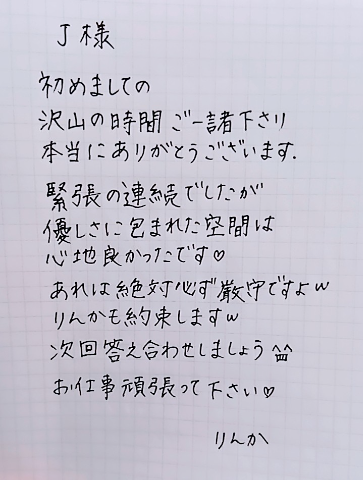 J様
初めましての
沢山の時間ご一諸下さり
本当にありがとうございます.
緊張の連続でしたが
優しさに包まれた空間は
心地良かったです♡
あれは絶対必ず厳守ですよw
りんかも約束しますw
次回答え合わせしましょう^皿^
お仕事頑張って下さい♡
りんか